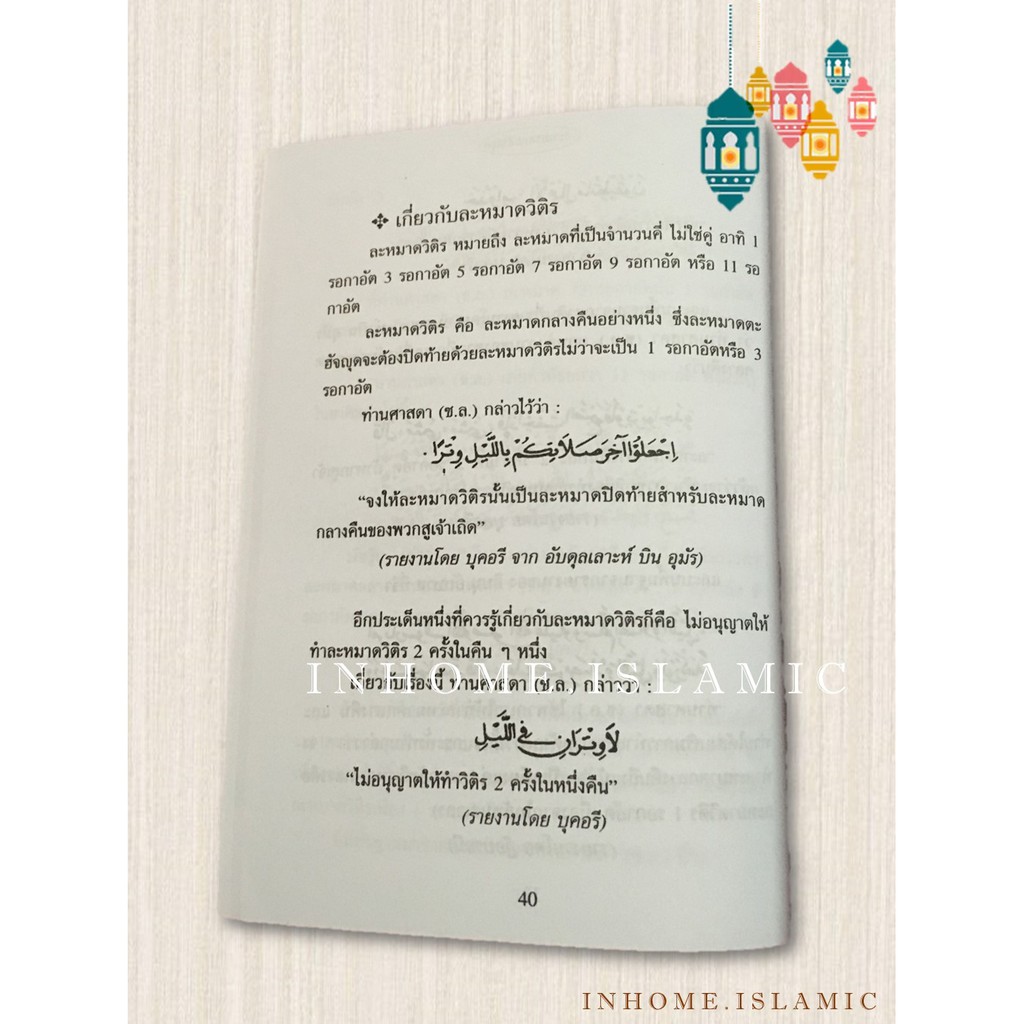 ✣ เกี่ยวกับละหมาดวิติร
ละหมาดวิติร หมายถึง ละหมาดที่เป็นจำนวนคี่ ไม่ใช่คู่ อาทิ 1
รอกาอัต 3 รอกาอัต 5 รอกาอัต 7 รอกาอัต 9 รอกาอัต หรือ 11 รอ
กาอัต
ละหมาดวิติร คือ ละหมาดกลางคืนอย่างหนึ่ง ซึ่งละหมาดตะ
ฮัจญุดจะต้องปิดท้ายด้วยละหมาดวิติรไม่ว่าจะเป็น 1 รอกาอัตหรือ 3
รอกาอัต
ท่านศาสดา (ซ.ล.) กล่าวไว้ว่า :
اِجْعَلُوْا آخِرَ صَلَاتِكُمْ بِاللَّيْلِ وِتْرًا .
“จงให้ละหมาดวิติรนั้นเป็นละหมาดปิดท้ายสำหรับละหมาด
กลางคืนของพวกสูเจ้าเถิด”
(รายงานโดย บุคอรี จาก อับดุลเลาะห์ บิน อุมัร)
อีกประเด็นหนึ่งที่ควรรู้เกี่ยวกับละหมาดวิติรก็คือ ไม่อนุญาตให้
ทำละหมาดวิติร 2 ครั้งในคืน ๆ หนึ่ง
INHOME.ISLAMIC
เกี่ยวกับเรื่องนี้ ท่านศาสดา (ซ.ล.) กล่าวว่า :
لَا وِتْرَانِ فِي اللَّيْلِ
“ไม่อนุญาตให้ทำวิติร 2 ครั้งในหนึ่งคืน”
(รายงานโดย บุคอรี)
40
INHOME.ISLAMIC